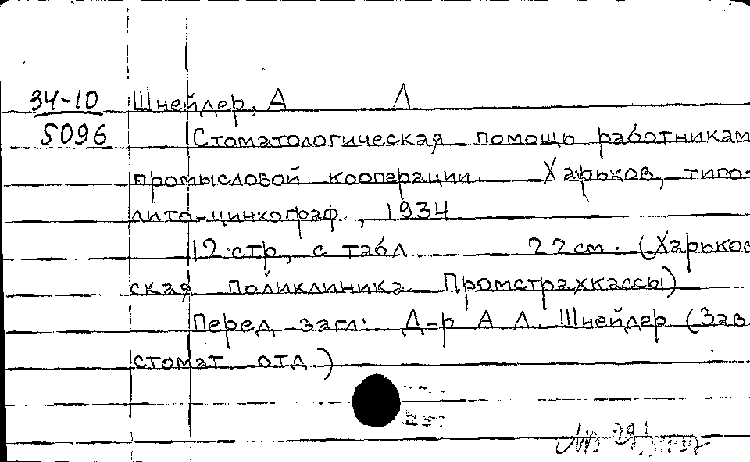 34-10 Шнейдер, А Л
5096 Стоматологическая помощь работникам
промысловой кооперации. Харьков, типо-
лито-цинкограф., 1934
12 стр, с табл 22 см. (Харьков
ская Поликлиника Промстрахкассы)
Перед загл: Д-р А Л. Шнейдер (Зав
стомат отд)